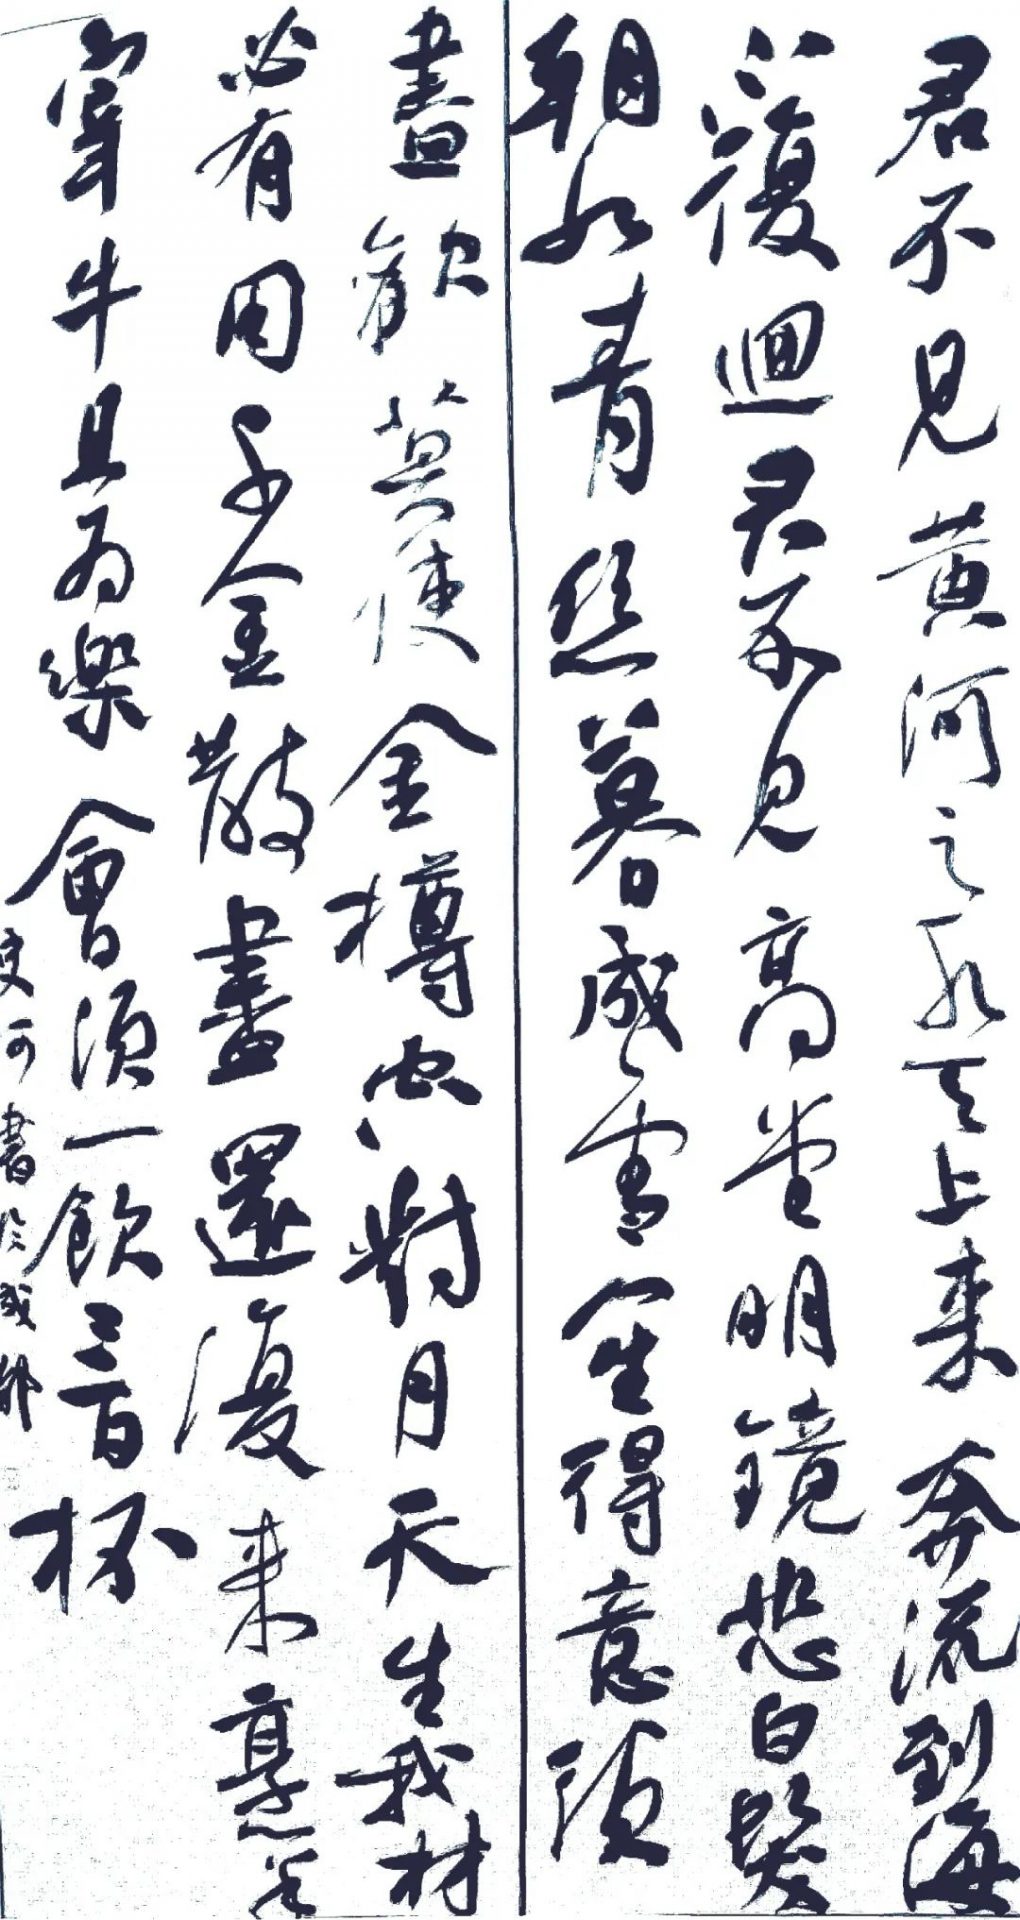 君不見黄河之水天上来奔流到海
不復迴君不見高堂明鏡悲白髮
朝如青丝暮成雪人生得意須
盡歡莫使金樽空對月天生我材
必有用千金散盡還復来烹羊
宰牛且为樂會須一飲三百杯
史可書於成都